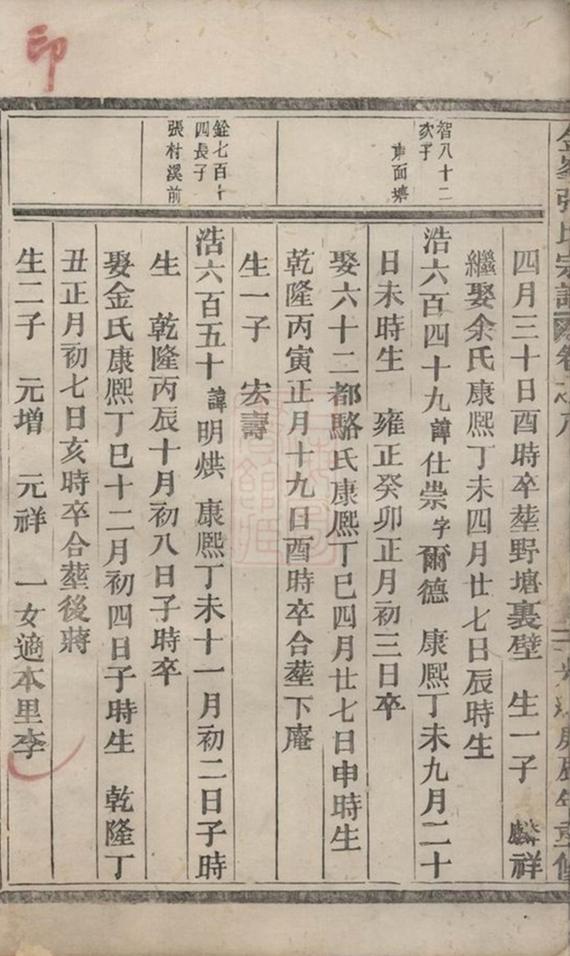 印
金峯張氏宗譜 卷之八
四月三十日酉時卒塟野塘裏壁 生一子 麟祥
繼娶余氏康熈丁未四月廿七日辰時生
智八十二
次子
東面塘
浩六百四十九諱仕崇字爾德 康熈丁未九月二十
日未時生 雍正癸卯正月初三日卒
娶六十二都駱氏康熈丁巳四月廿七日申時生
乾隆丙寅正月十九日酉時卒合塟下庵
生一子 宏壽
銓七百十
四長子
張村溪前
浩六百五十諱明烘 康熈丁未十一月初二日子時
生 乾隆丙辰十月初八日子時卒
娶金氏康熈丁巳十二月初四日子時生 乾隆丁
丑正月初七日亥時卒合塟後蔣
生二子 元增 元祥 一女適本里李